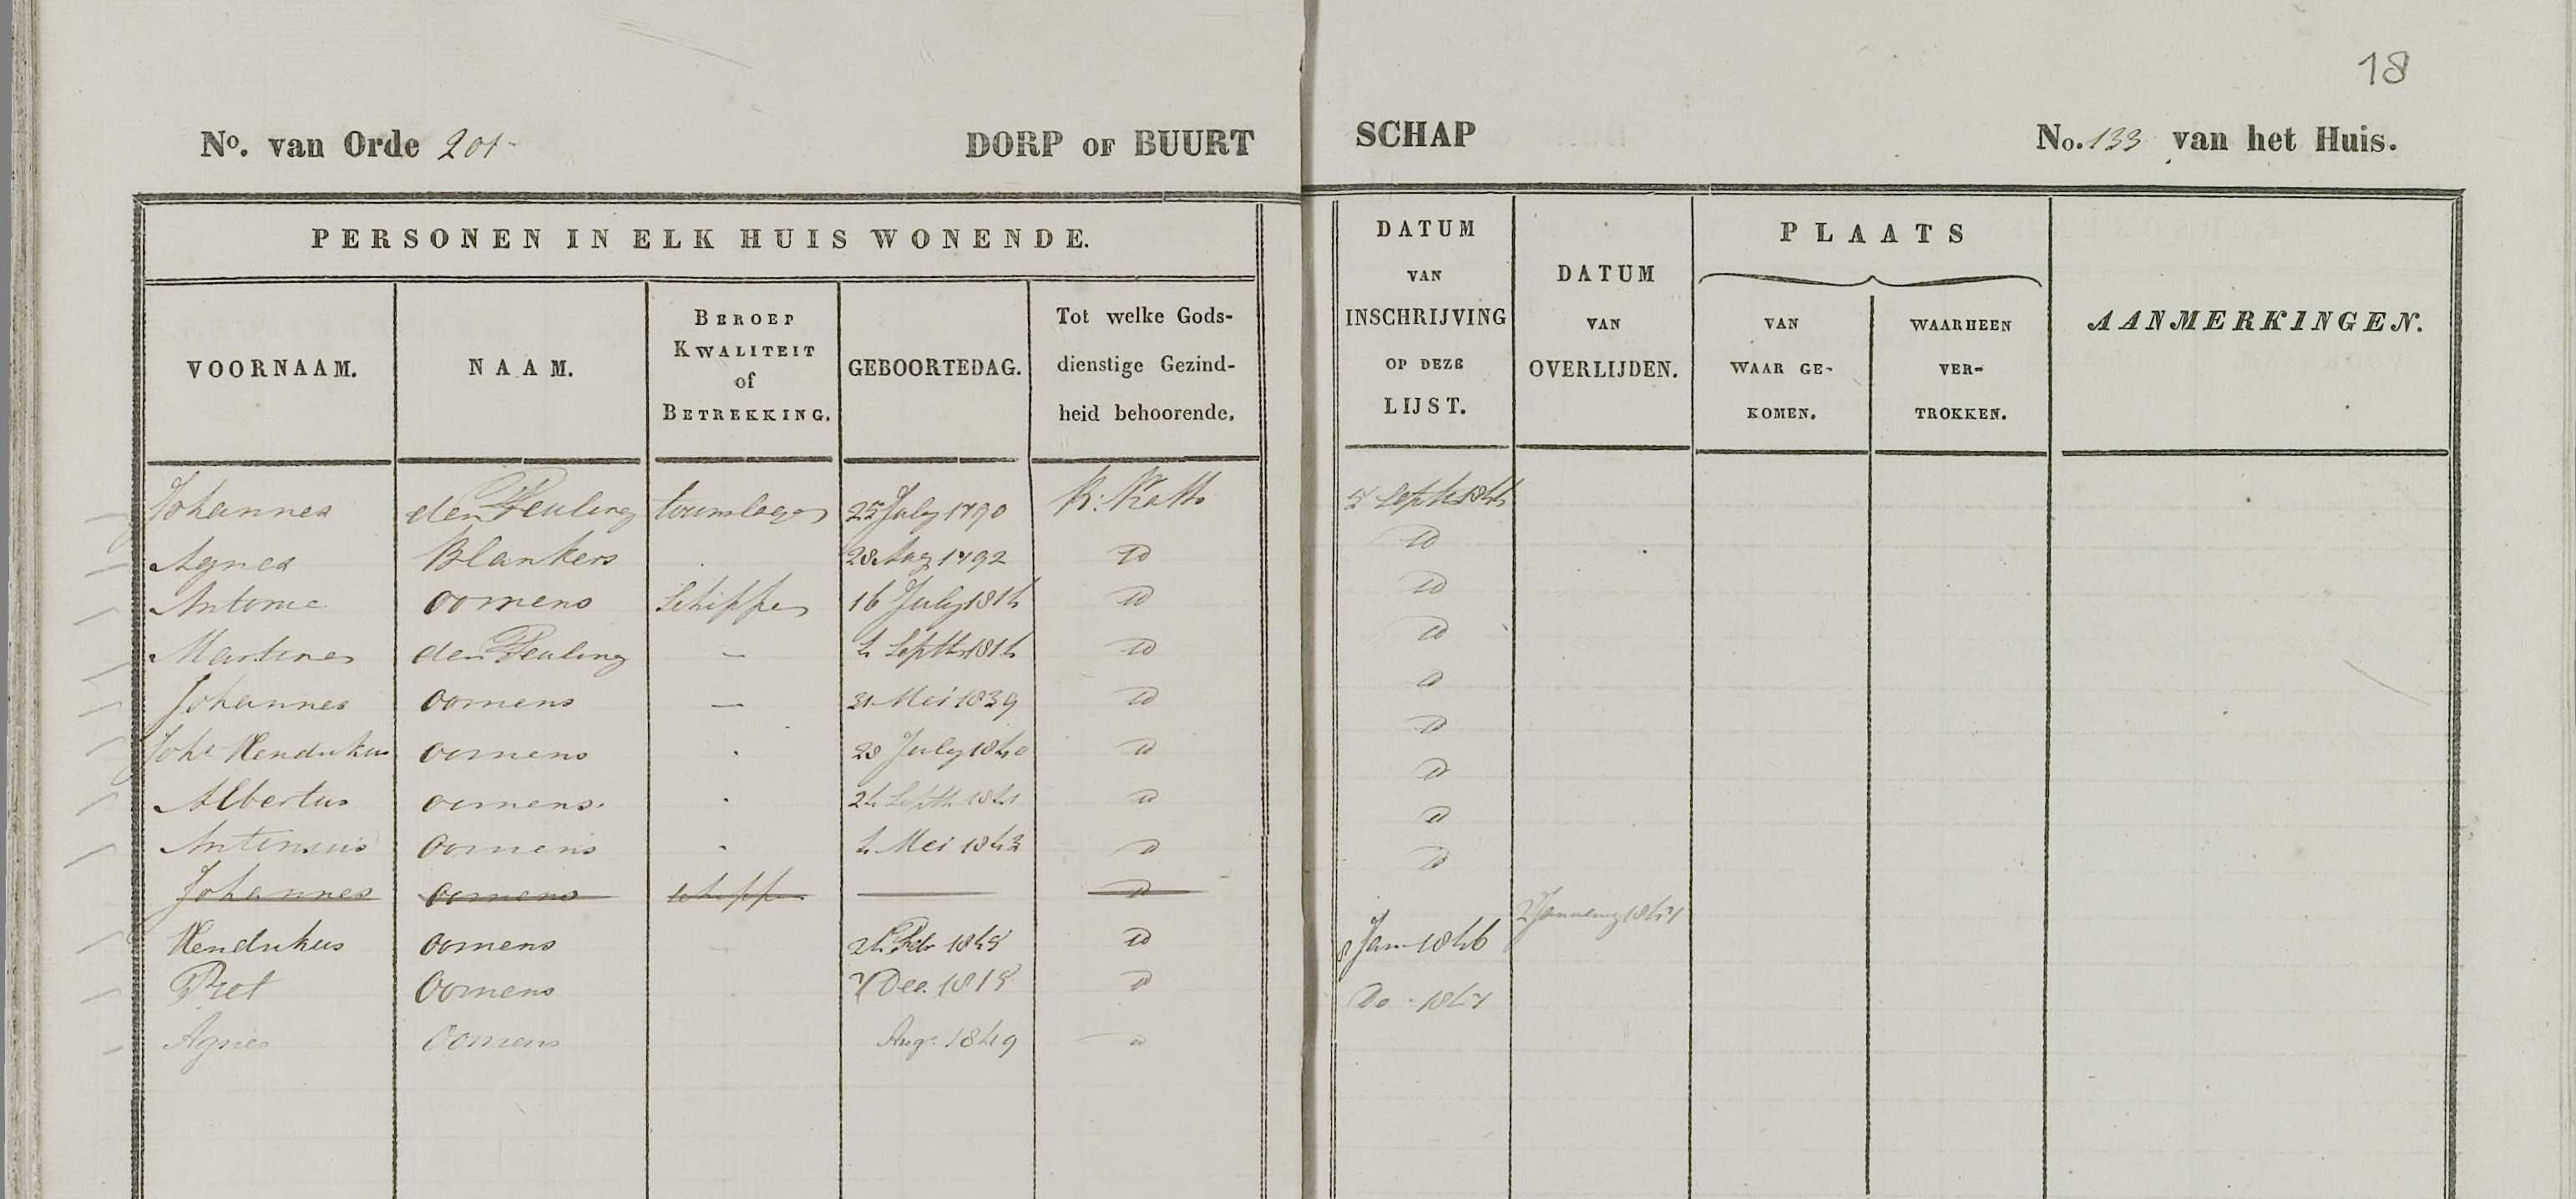 18
No. van Orde 201 DORP OF BUURT SCHAP No. 133 van het Huis.
PERSONEN IN ELK HUIS WONENDE.
VOORNAAM.
NAAM.
BEROEP KWALITEIT of BETREKKING.
GEBOORTEDAG.
Tot welke Gods-
dienstige Gezind-
heid behoorende.
DATUM
VAN
INSCHRIJVING
OP DEZE
LIJST.
DATUM
VAN
OVERLIJDEN.
PLAATS
VAN
WAAR GE-
KOMEN.
WAARHEEN
VER-
TROKKEN.
AANMERKINGEN.
Johannes den Peuling touwslager 25 July 1790 R: Kath 5 Septb 1844
Agnes Blankers 28 Aug 1792 id id
Antonie oomens Schipper 16 July 1814 id id
Martines den Peuling – 4 Septb 1814 id id
Johannes oomens – 31 Mei 1839 id id
Johs Hendrikus oomens 28 July 1840 id id
Albertus oomens 24 Septb 1841 id id
Antonius oomens 4 Mei 1843 id id
Johannes oomens schipper — id id
Hendrikus oomens 24 Febr 1845 id 8 Jan 1846 2 January 1847
Piet Oomens 7 Dec. 1815 id Do 1847
Agnes Oomens Augs 1849 id